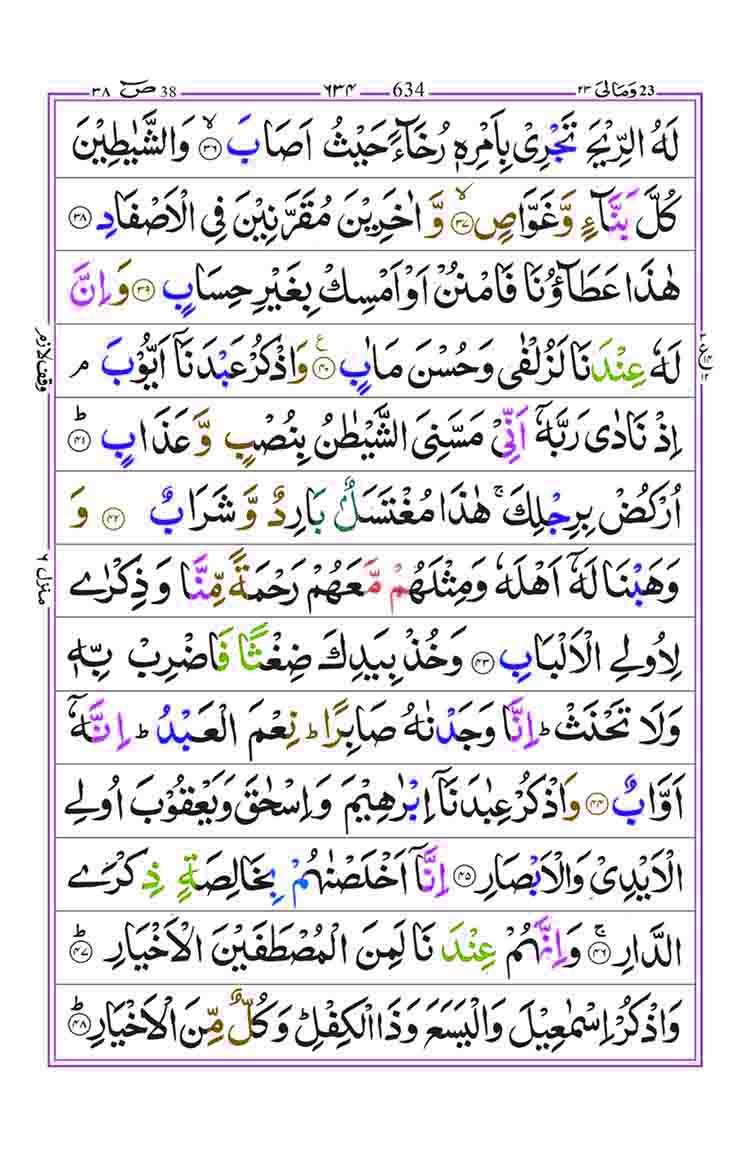 23 وَمَالِیَ ۲۳ 634 ۶۳۴ 38 صٓ ۳۸
لَهُ الرِّیْحَ تَجْرِیْ بِاَمْرِهٖ رُخَآءً حَیْثُ اَصَابَ ۙ۝۳۶ وَالشَّیٰطِیْنَ
كُلَّ بَنَّآءٍ وَّغَوَّاصٍ ۙ۝۳۷ وَّ اٰخَرِیْنَ مُقَرَّنِیْنَ فِی الْاَصْفَادِ ۝۳۸
هٰذَا عَطَآؤُنَا فَامْنُنْ اَوْ اَمْسِكْ بِغَیْرِ حِسَابٍ ۝۳۹ وَاِنَّ
لَهٗ عِنْدَنَا لَزُلْفٰی وَحُسْنَ مَاٰبٍ ۝۴۰ ع وَاذْكُرْ عَبْدَنَاۤ اَیُّوْبَ ۘ
اِذْ نَادٰی رَبَّهٗۤ اَنِّیْ مَسَّنِیَ الشَّیْطٰنُ بِنُصْبٍ وَّعَذَابٍ ؕ۝۴۱
اُرْكُضْ بِرِجْلِكَ ۚ هٰذَا مُغْتَسَلٌۢ بَارِدٌ وَّشَرَابٌ ۝۴۲ وَ
وَهَبْنَا لَهٗۤ اَهْلَهٗ وَمِثْلَهُمْ مَّعَهُمْ رَحْمَةً مِّنَّا وَ ذِكْرٰی
لِاُولِی الْاَلْبَابِ ۝۴۳ وَخُذْ بِیَدِكَ ضِغْثًا فَاضْرِبْ بِّهٖ
وَلَا تَحْنَثْ ؕ اِنَّا وَجَدْنٰهُ صَابِرًا ؕ نِعْمَ الْعَبْدُ ؕ اِنَّهٗۤ
اَوَّابٌ ۝۴۴ وَاذْكُرْ عِبٰدَنَاۤ اِبْرٰهِیْمَ وَاِسْحٰقَ وَیَعْقُوْبَ اُولِی
الْاَیْدِیْ وَالْاَبْصَارِ ۝۴۵ اِنَّاۤ اَخْلَصْنٰهُمْ بِخَالِصَةٍ ذِكْرَی
الدَّارِ ۚ۝۴۶ وَاِنَّهُمْ عِنْدَ نَا لَمِنَ الْمُصْطَفَیْنَ الْاَخْیَارِ ؕ۝۴۷
وَاذْكُرْ اِسْمٰعِیْلَ وَالْیَسَعَ وَذَا الْكِفْلِ ؕ وَكُلٌّ مِّنَ الْاَخْیَارِ ؕ۝۴۸
وقف لازم
منزل ۶